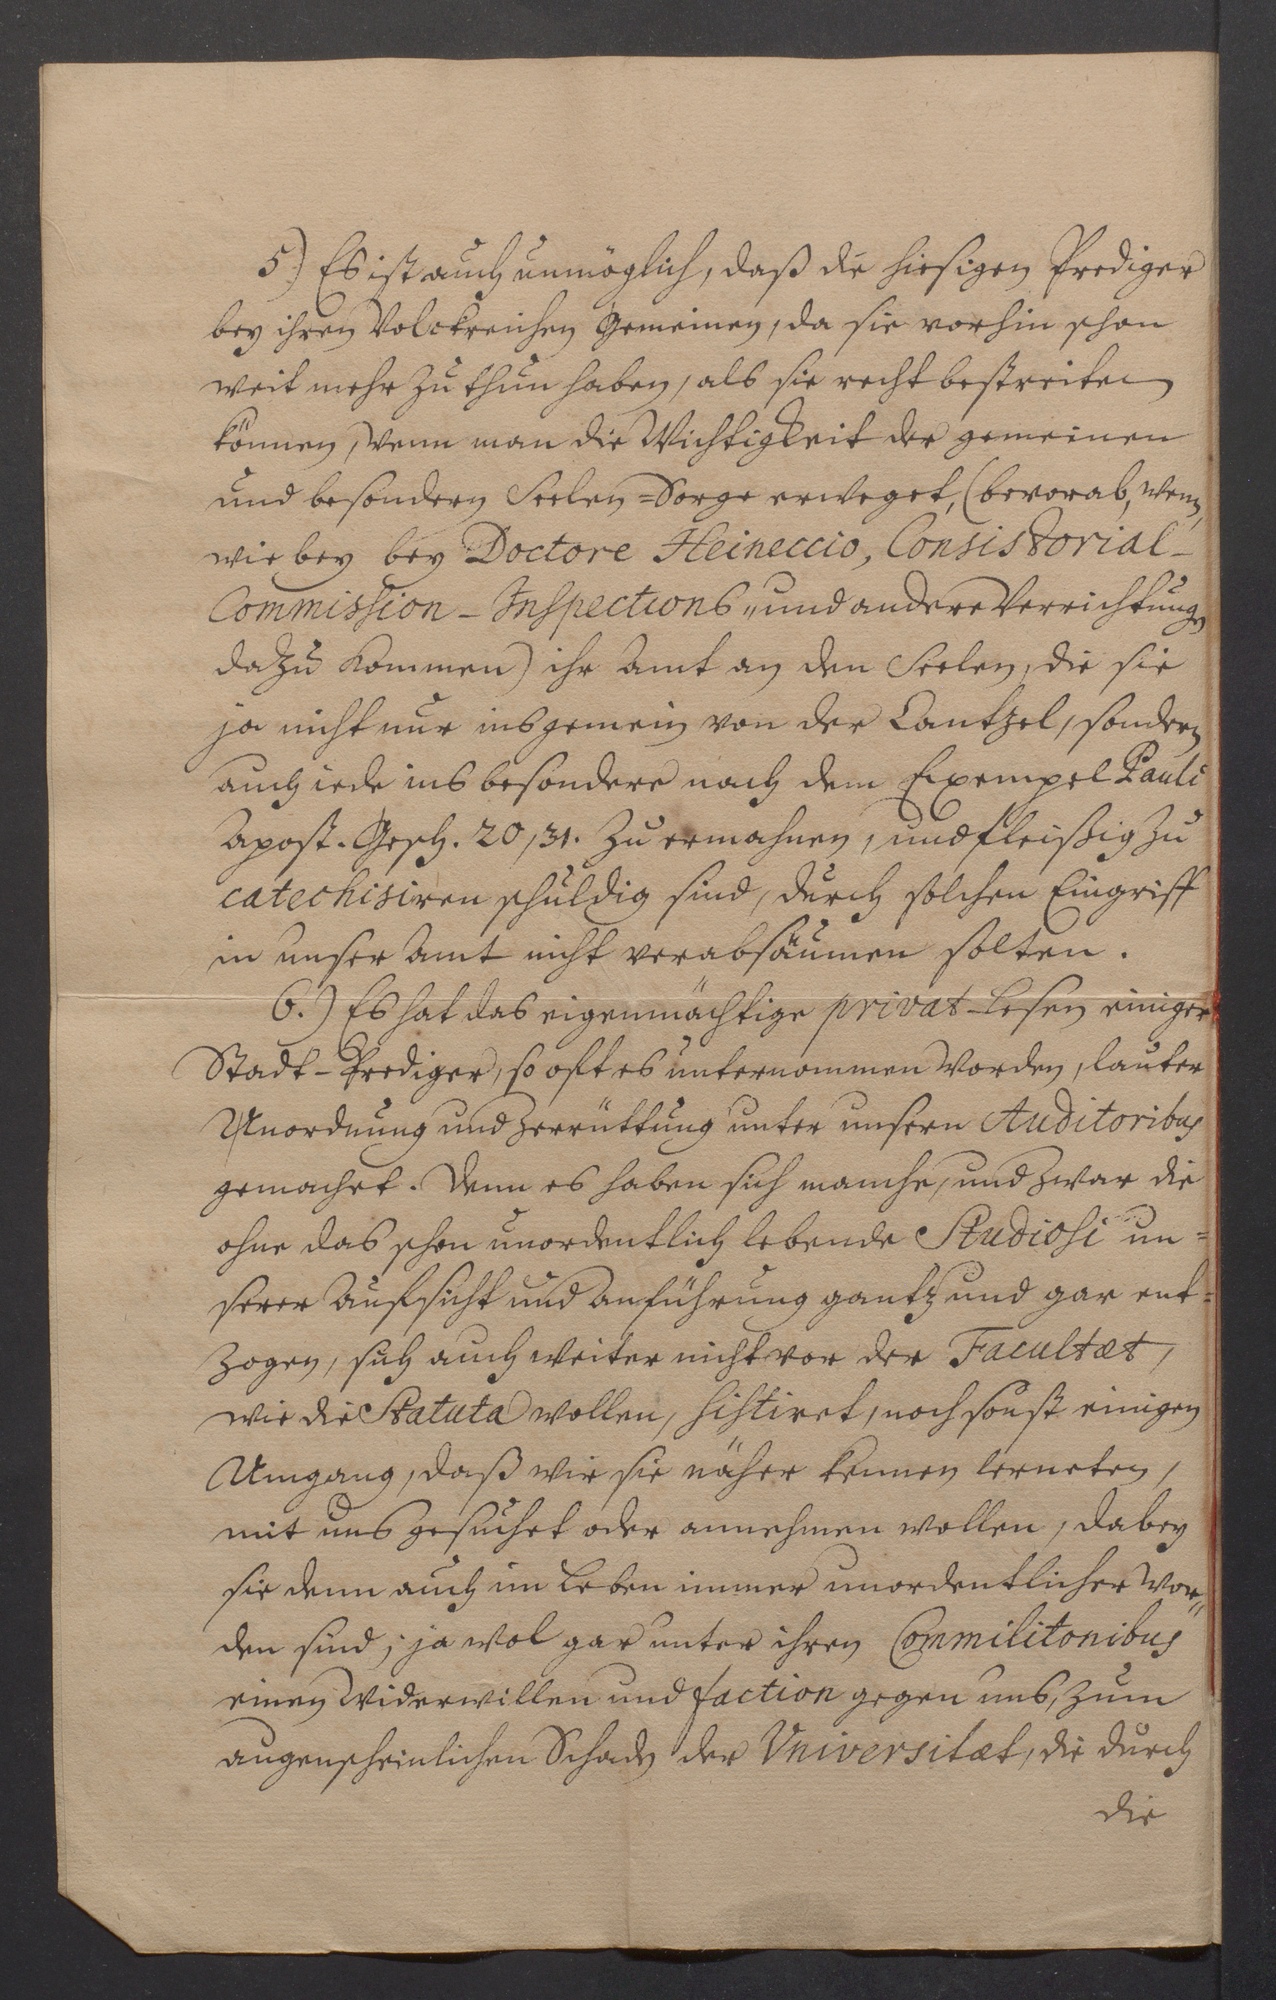 5.) Es ist auch unmöglich, daß die hiesigen Prediger
bey ihren Volckreichen Gemeinen, da sie vorhin schon
weit mehr zu thun haben, als sie recht bestreiten
können, wenn man die Wichtigkeit der gemeinen
und besondern Seelen=Sorge erweget, (bevorab, wenn,
wie bey bey Doctore Heineccio, Consistorial-
Commission- Inspections- und andere Verrichtungen
dazu kommen) ihr Amt an den Seelen, die sie
ja nicht nur insgemein von der Cantzel, sondern
auch iede ins besondere nach dem Exempel Pauli
Apost. Gesch. 20, 31. zu ermahnen, und fleißig zu
catechisiren schuldig sind, durch solchen Eingriff
in unser Amt nicht verabsäumen solten.
6.) Es hat das eigenmächtige privat-Lesen einiger
Stadt-Prediger, so oft es unternommen worden, lauter
Unordnung und Zerrüttung unter unsern Auditoribus
gemachet. Denn es haben sich manche, und zwar die
ohne das schon unordentlich lebende Studiosi un=
serer Aufsicht und Anführung gantz und gar ent=
zogen, sich auch weiter nicht vor der Facultæt,
wie die Statuta wollen, sistiret, noch sonst einigen
Umgang, daß wir sie näher kennen lerneten,
mit uns gesuchet oder annehmen wollen, dabey
sie denn auch im Leben immer unordentlicher wor=
den sind; ja wol gar unter ihren Commilitonibus
einen Widerwillen und faction gegen uns, zum
augenscheinlichen Schaden der Universitæt, die durch
die